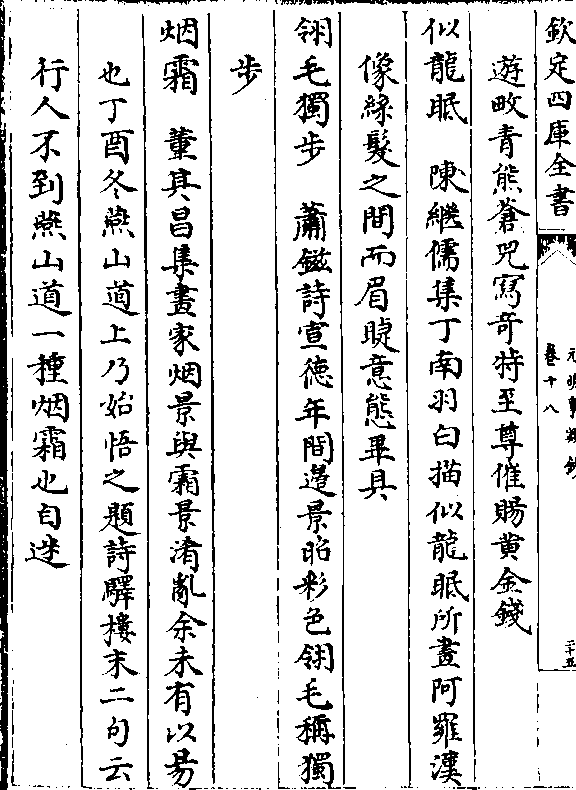 欽定四庫全書
元明事類鈔
卷十八
二十五
遊畋青熊蒼兕寫竒特至尊催賜黄金錢
似龍眠　陳繼儒集丁南羽白描似龍眠所畫阿羅漢
像絲髮之間而眉睫意態畢具
翎毛獨步　蕭鎡詩宣德年間邉景昭彩色翎毛稱獨
步
烟霜　董其昌集畫家烟景與霜景淆亂余未有以易
也丁酉冬燕山道上乃始悟之題詩驛樓末二句云
行人不到燕山道一種烟霜也自迷